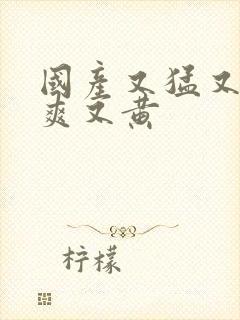 國產又猛又
爽又黄
柠檬